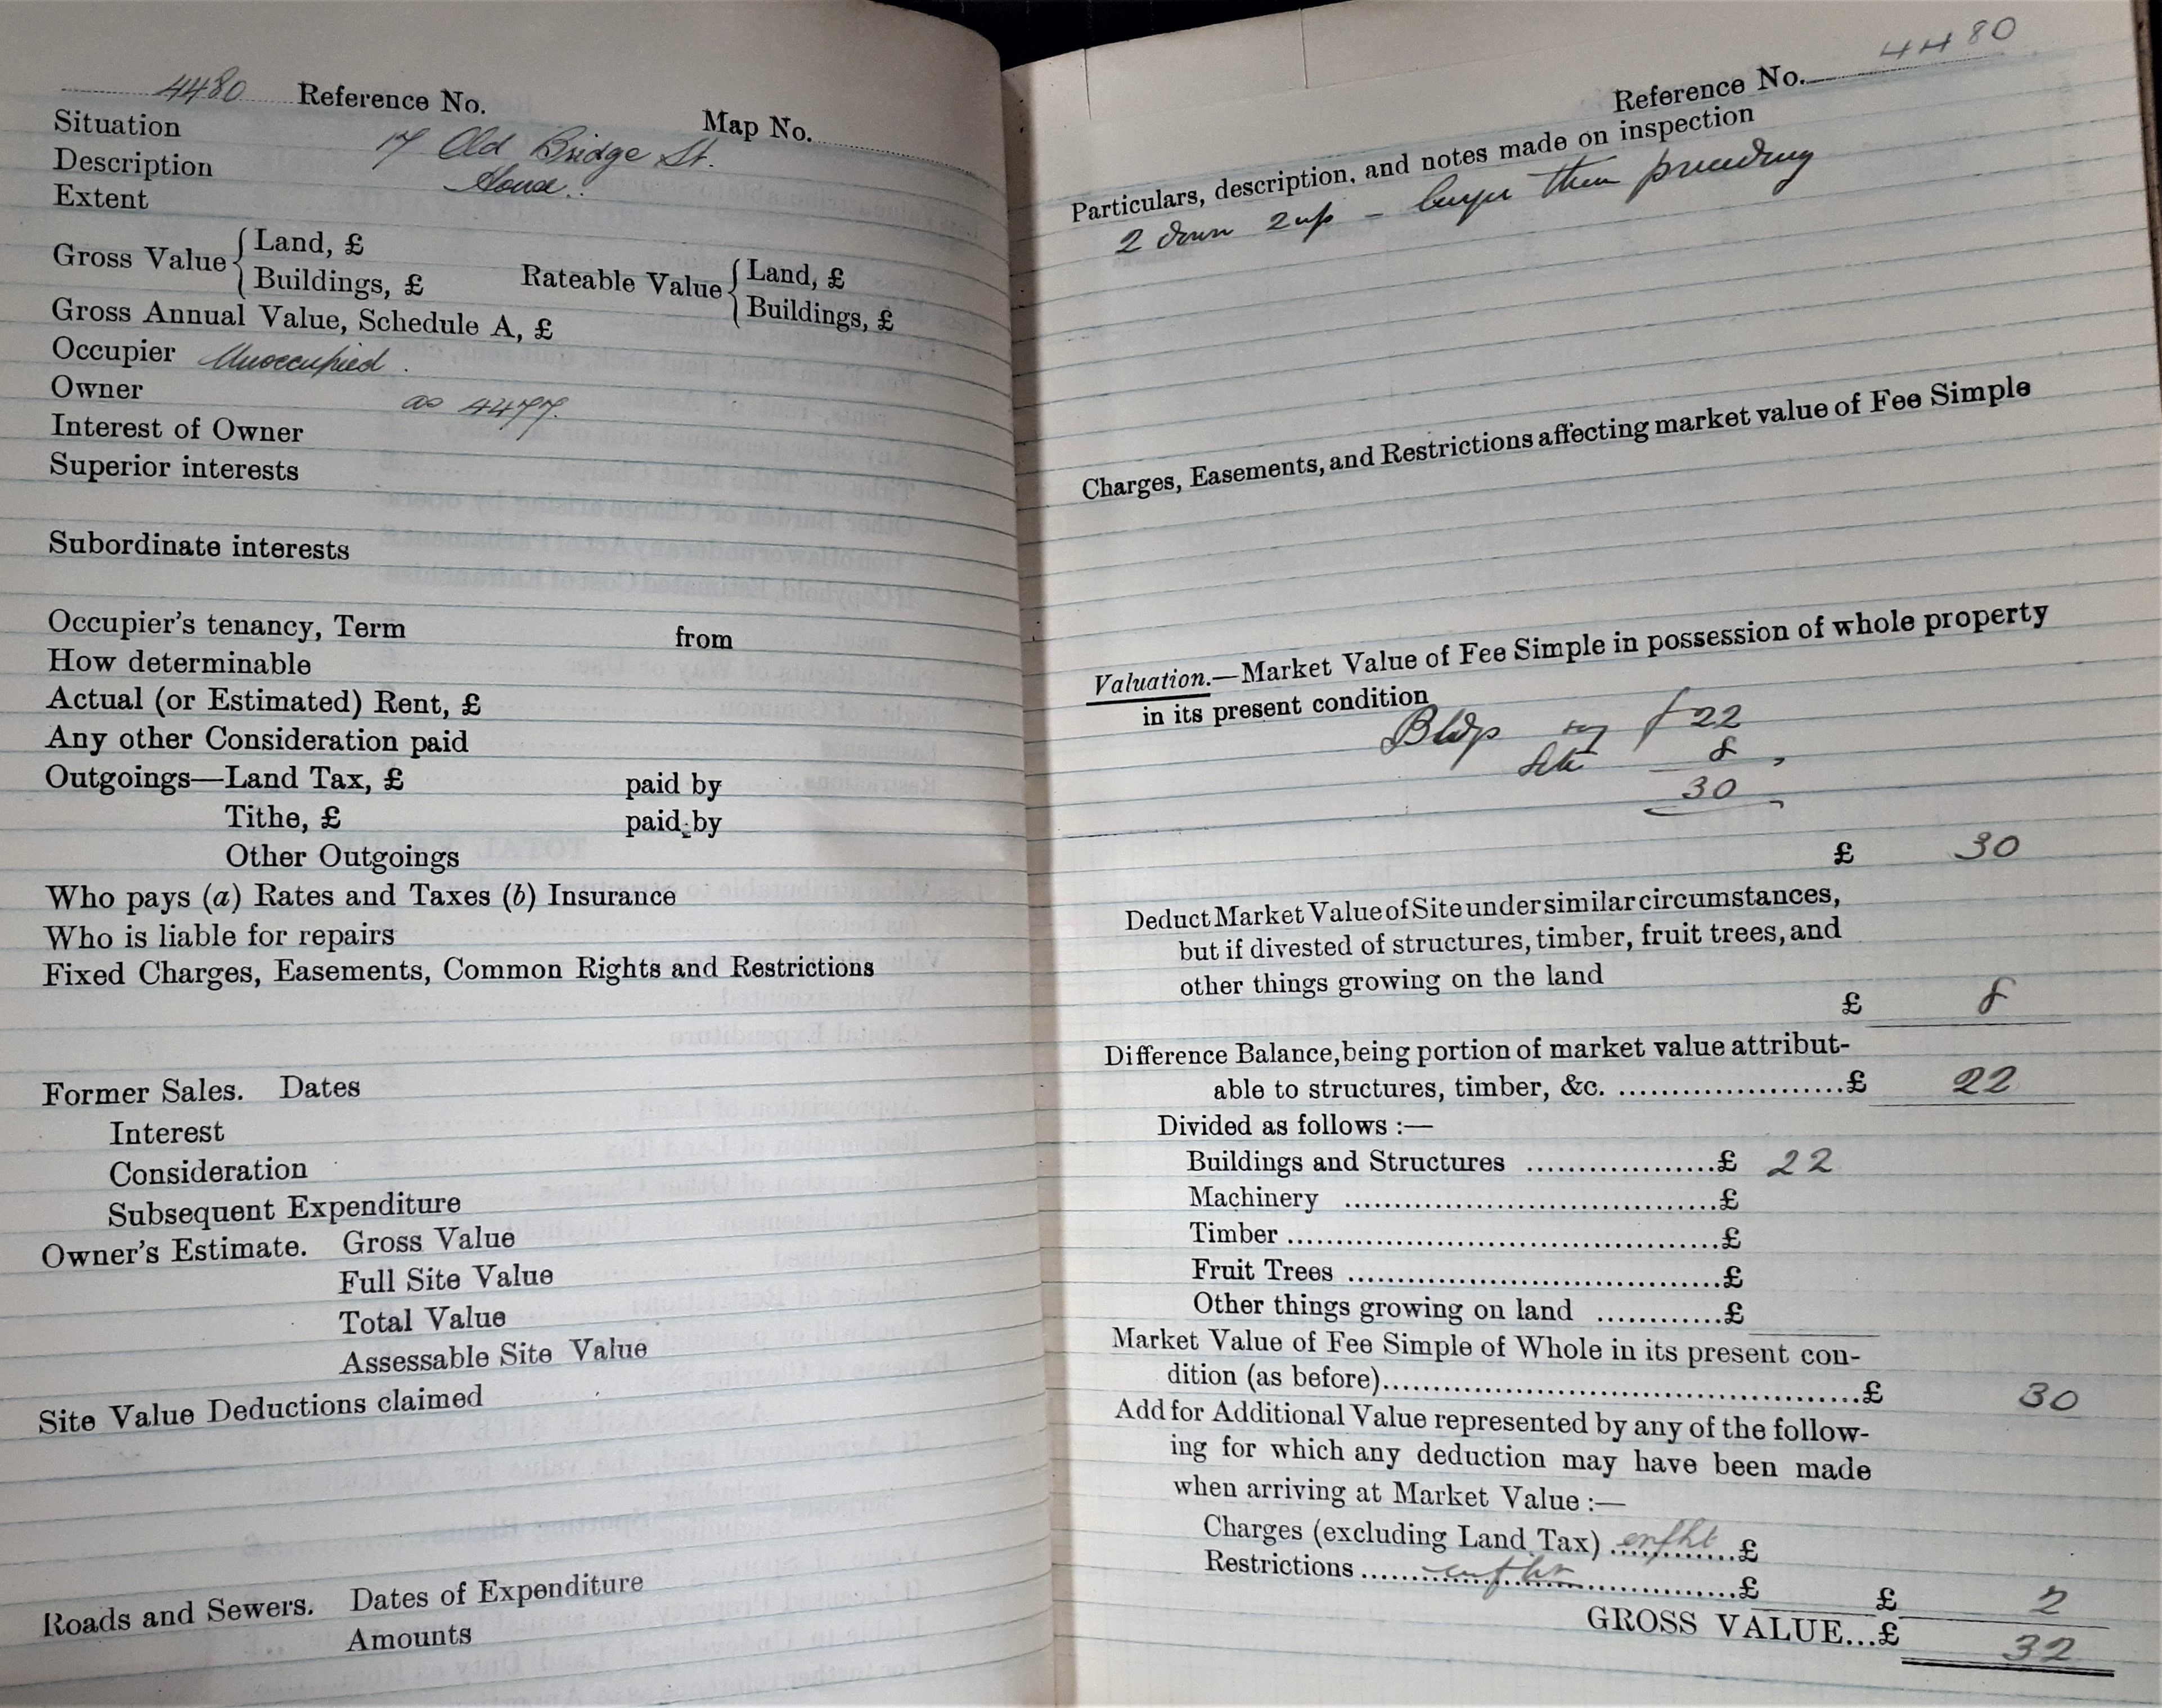 4480 Reference No. Map No.
Situation 17 Old Bridge St.
Description House.
Extent
Gross Value { Land, £
Buildings, £
Rateable Value { Land, £
Buildings, £
Gross Annual Value, Schedule A, £
Occupier Unoccupied.
Owner as 4477.
Interest of Owner
Superior interests
Subordinate interests
Occupier's tenancy, Term from
How determinable
Actual (or Estimated) Rent, £
Any other Consideration paid
Outgoings—Land Tax, £ paid by
Tithe, £ paid by
Other Outgoings
Who pays (a) Rates and Taxes (b) Insurance
Who is liable for repairs
Fixed Charges, Easements, Common Rights and Restrictions
Former Sales. Dates
Interest
Consideration
Subsequent Expenditure
Owner's Estimate. Gross Value
Full Site Value
Total Value
Assessable Site Value
Site Value Deductions claimed
Roads and Sewers. Dates of Expenditure
Amounts
Reference No. 4480
Particulars, description, and notes made on inspection
2 down 2 up - larger than preceding
Charges, Easements, and Restrictions affecting market value of Fee Simple
Valuation.—Market Value of Fee Simple in possession of whole property
in its present condition
Bldgs say £22
Site 8
30
£ 30
Deduct Market Value of Site under similar circumstances,
but if divested of structures, timber, fruit trees, and
other things growing on the land
£ 8
Difference Balance, being portion of market value attribut-
able to structures, timber, &c. ......................£ 22
Divided as follows :—
Buildings and Structures ..................£ 22
Machinery ....................................£
Timber .........................................£
Fruit Trees ....................................£
Other things growing on land ............£
Market Value of Fee Simple of Whole in its present con-
dition (as before)..............................................£ 30
Add for Additional Value represented by any of the follow-
ing for which any deduction may have been made
when arriving at Market Value :—
Charges (excluding Land Tax) ............£
Restrictions ....................................£ £ 2
GROSS VALUE...£ 32